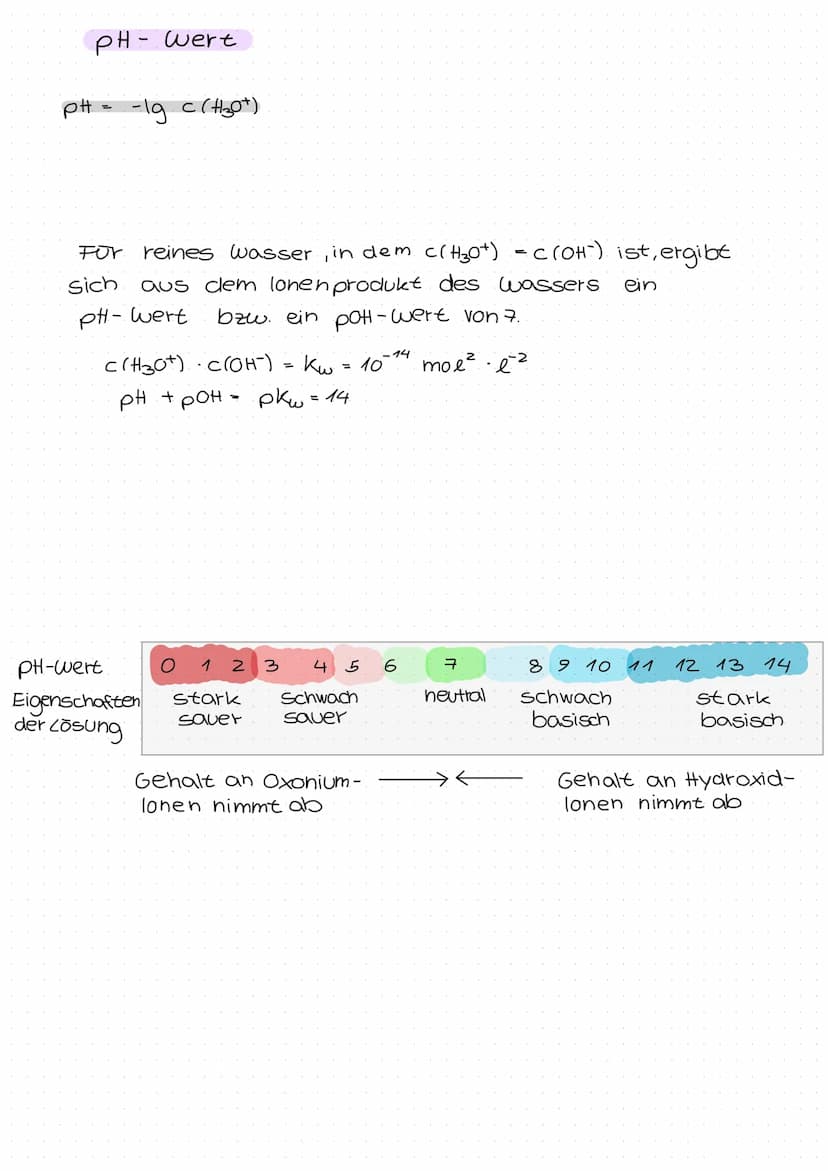 pH-Wert
pH = -lg c(H₃O⁺)
Für reines Wasser, in dem c(H₃O⁺) = c(OH⁻) ist, ergibt
sich aus dem Ionenprodukt des Wassers ein
pH-Wert bzw. ein pOH-Wert von 7.
c(H₃O⁺) · c(OH⁻) = Kw = 10⁻¹⁴ mol² · l⁻²
pH + pOH = pKw = 14
pH-Wert 0 1 2 3 4 5 6 7 8 9 10 11 12 13 14
Eigenschaften der Lösung
stark sauer
schwach sauer
neutral
schwach basisch
stark basisch
Gehalt an Oxonium-
Ionen nimmt ab
⟶ ⟵
Gehalt an Hydroxid-
Ionen nimmt ab